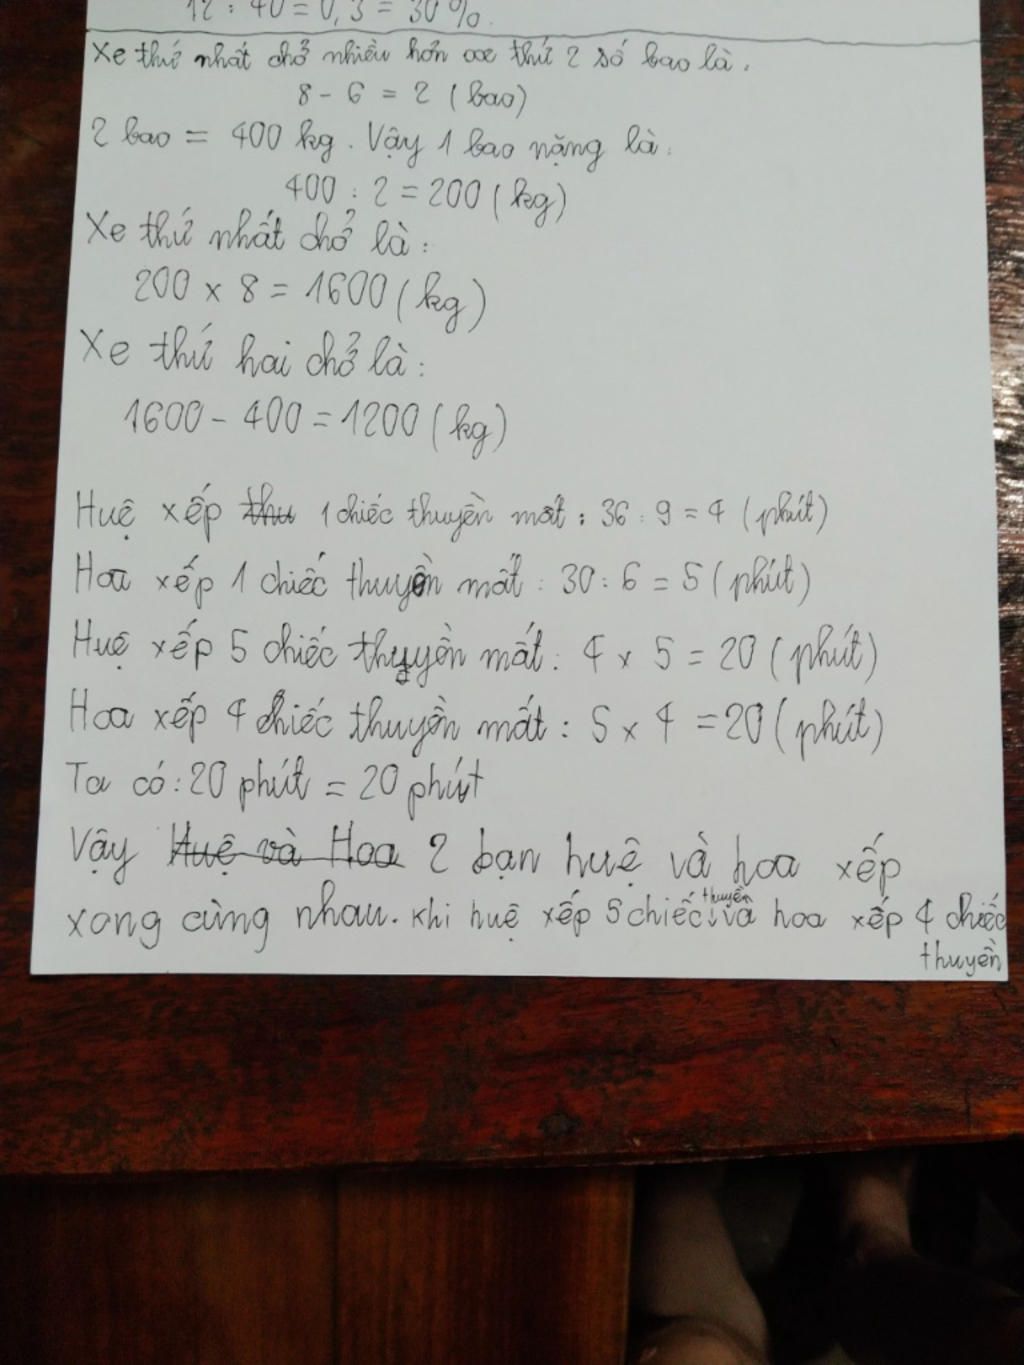 12 : 40 = 0,3 = 30%.
Xe thứ nhất chở nhiều hơn xe thứ 2 số bao là.
8 - 6 = 2 (bao)
2 bao = 400 kg. Vậy 1 bao nặng là:
400 : 2 = 200 (kg)
Xe thứ nhất chở là:
200 x 8 = 1600 (kg)
Xe thứ hai chở là:
1600 - 400 = 1200 (kg)
Huệ xếp thu 1 chiếc thuyền mất : 36 : 9 = 4 (phút)
Hoa xếp 1 chiếc thuyền mất : 30 : 6 = 5 (phút)
Huệ xếp 5 chiếc thuyền mất : 4 x 5 = 20 (phút)
Hoa xếp 4 chiếc thuyền mất : 5 x 4 = 20 (phút)
Ta có : 20 phút = 20 phút
Vậy Huệ và Hoa 2 bạn huệ và hoa xếp
xong cùng nhau. Khi huệ xếp 5 chiếc thuyền và hoa xếp 4 chiếc
thuyền